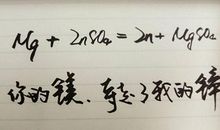 Mg + ZnSO₄ = Zn + MgSO₄
你的镁,夺走了我的锌